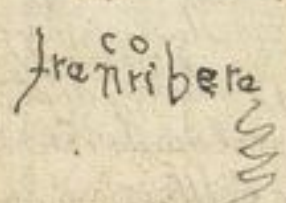 franco ribera